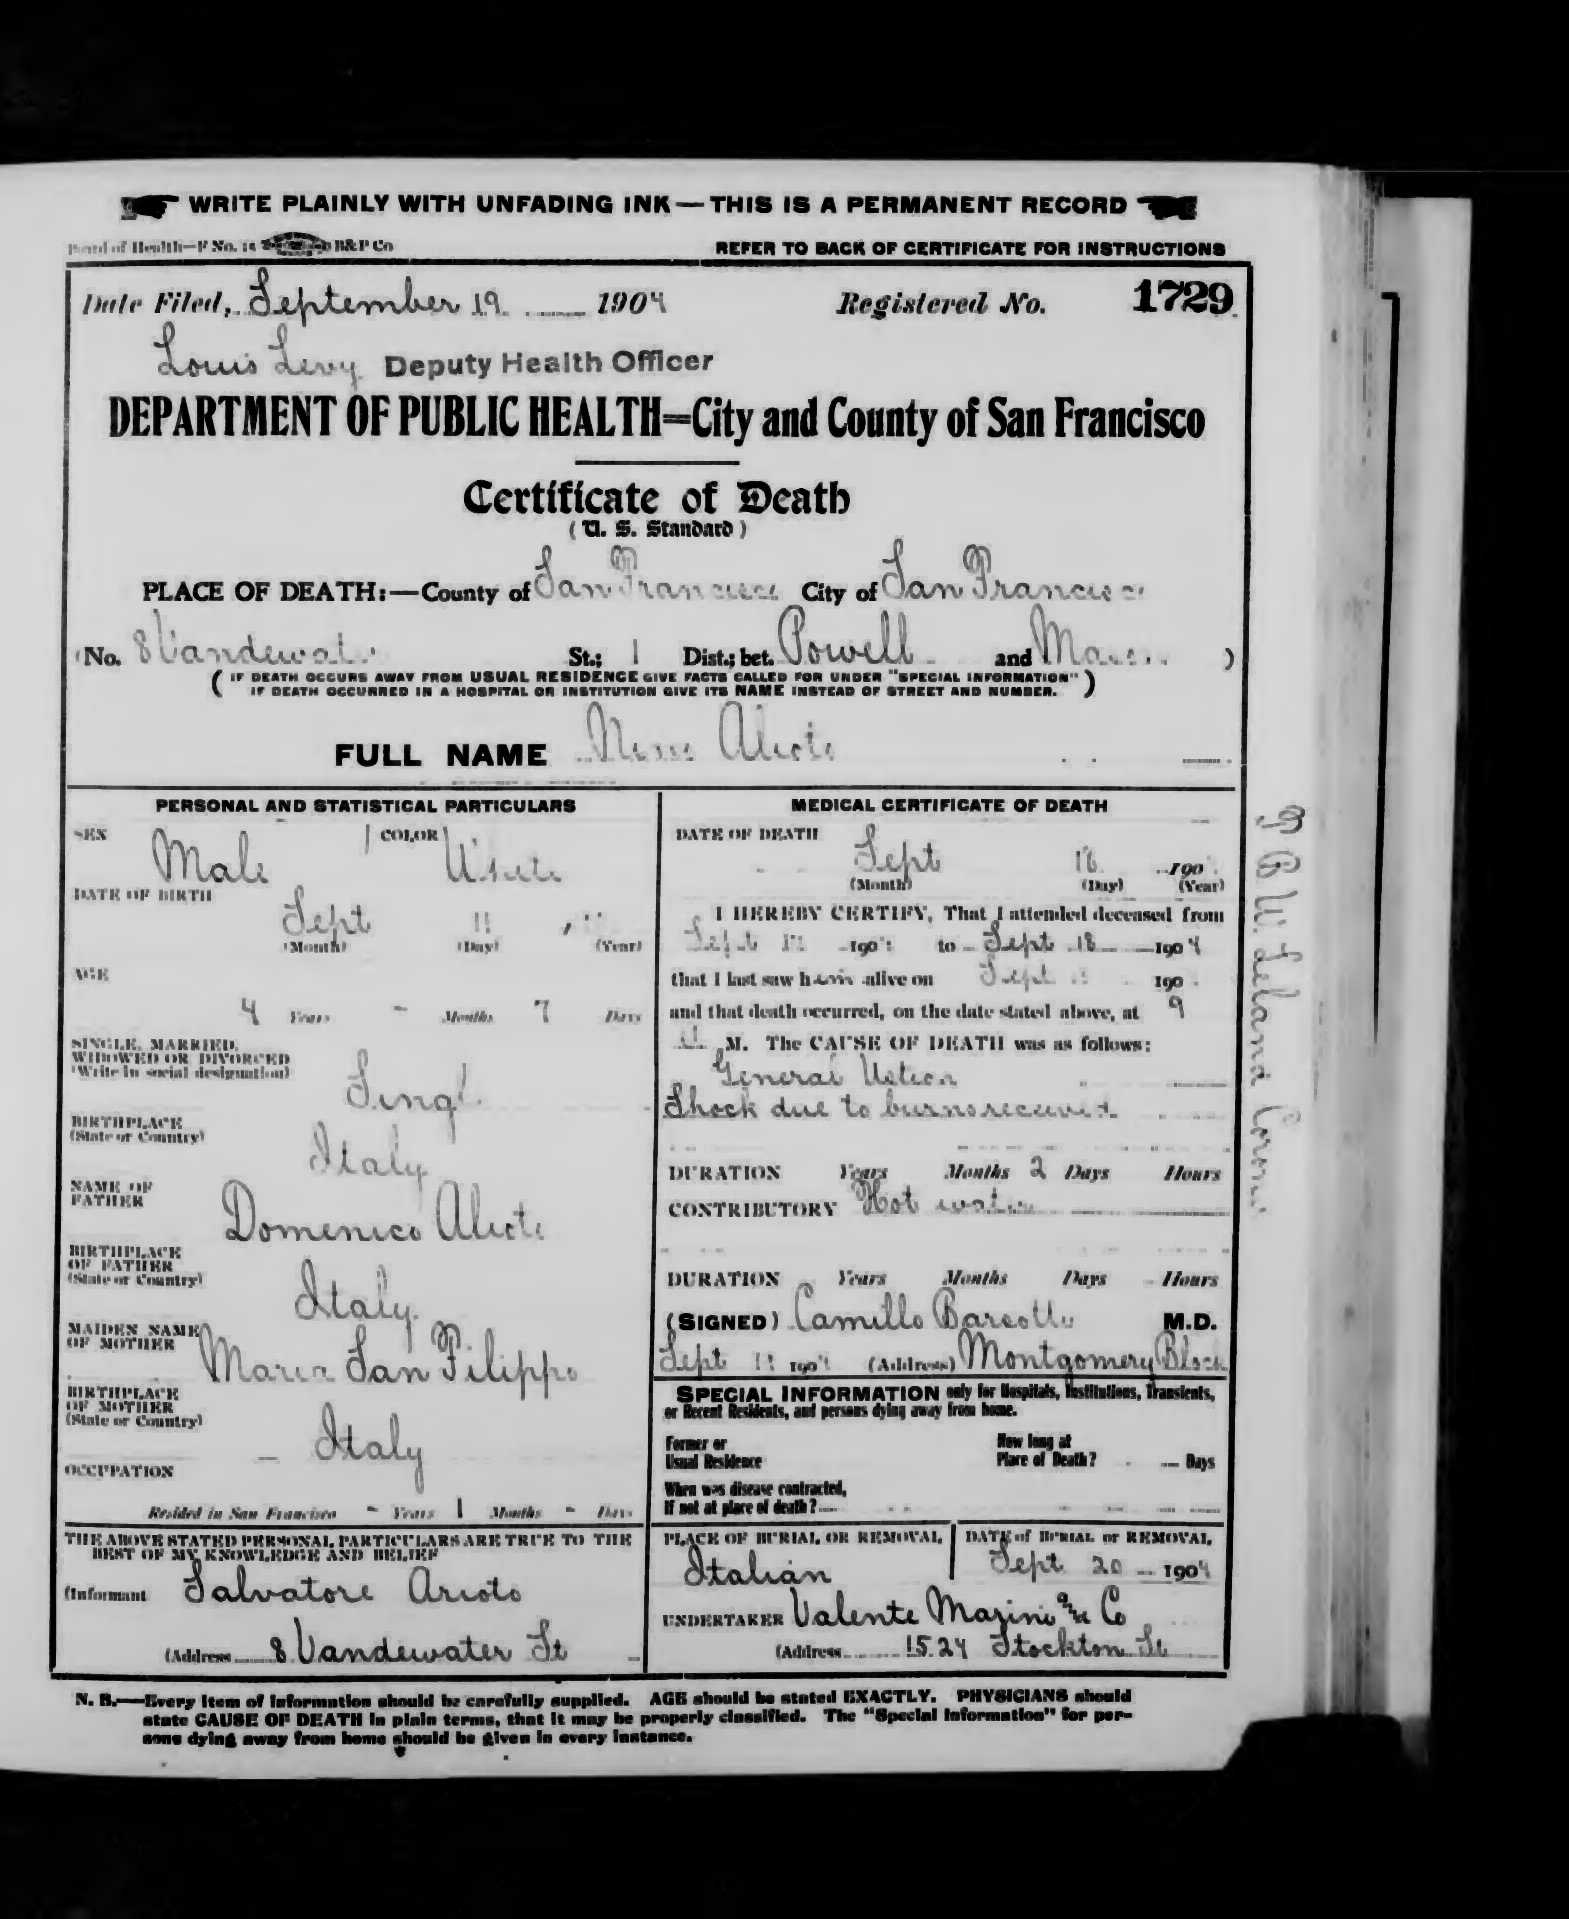 WRITE PLAINLY WITH UNFADING INK — THIS IS A PERMANENT RECORD
Board of Health—F No. B&P Co
REFER TO BACK OF CERTIFICATE FOR INSTRUCTIONS
Date Filed, September 19 1904 Registered No. 1729
Louis Levy Deputy Health Officer
DEPARTMENT OF PUBLIC HEALTH=City and County of San Francisco
Certificate of Death
(U. S. Standard)
PLACE OF DEATH:—County of San Francisco City of San Francisco
(No. 8 Vandewater St.; 1 Dist.; bet. Powell and Mason)
(IF DEATH OCCURS AWAY FROM USUAL RESIDENCE GIVE FACTS CALLED FOR UNDER "SPECIAL INFORMATION"
IF DEATH OCCURRED IN A HOSPITAL OR INSTITUTION GIVE ITS NAME INSTEAD OF STREET AND NUMBER.)
FULL NAME Alioto
PERSONAL AND STATISTICAL PARTICULARS
SEX Male COLOR White
DATE OF BIRTH
Sept 11
(Month) (Day) (Year)
AGE
4 Years - Months 7 Days
SINGLE, MARRIED,
WIDOWED OR DIVORCED
(Write in social designation)
Single
BIRTHPLACE
(State or Country)
Italy
NAME OF
FATHER
Domenico Alioto
BIRTHPLACE
OF FATHER
(State or Country)
Italy
MAIDEN NAME
OF MOTHER
Maria San Filippo
BIRTHPLACE
OF MOTHER
(State or Country)
Italy
OCCUPATION
Resided in San Francisco - Years 1 Months - Days
THE ABOVE STATED PERSONAL PARTICULARS ARE TRUE TO THE
BEST OF MY KNOWLEDGE AND BELIEF
(Informant Salvatore Arioto
(Address 8 Vandewater St
MEDICAL CERTIFICATE OF DEATH
DATE OF DEATH
Sept 18 190
(Month) (Day) (Year)
I HEREBY CERTIFY, That I attended deceased from
Sept 190 to Sept 18 1904
that I last saw him alive on Sept 190
and that death occurred, on the date stated above, at 9
M. The CAUSE OF DEATH was as follows:
General Ustion
Shock due to burns received
DURATION Years Months 2 Days Hours
CONTRIBUTORY Hot water
DURATION Years Months Days Hours
(SIGNED) Camillo Barsotti M.D.
Sept 1904 (Address) Montgomery Block
SPECIAL INFORMATION only for Hospitals, Institutions, Transients,
or Recent Residents, and persons dying away from home.
Former or
Usual Residence
How long at
Place of Death? Days
When was disease contracted,
If not at place of death?
PLACE OF BURIAL OR REMOVAL
Italian
DATE of BURIAL or REMOVAL
Sept 20 1904
UNDERTAKER Valente Marini & Co
(Address 1524 Stockton St
N. B.—Every item of information should be carefully supplied. AGE should be stated EXACTLY. PHYSICIANS should
state CAUSE OF DEATH in plain terms, that it may be properly classified. The "Special Information" for per-
sons dying away from home should be given in every instance.
Leland Coroner